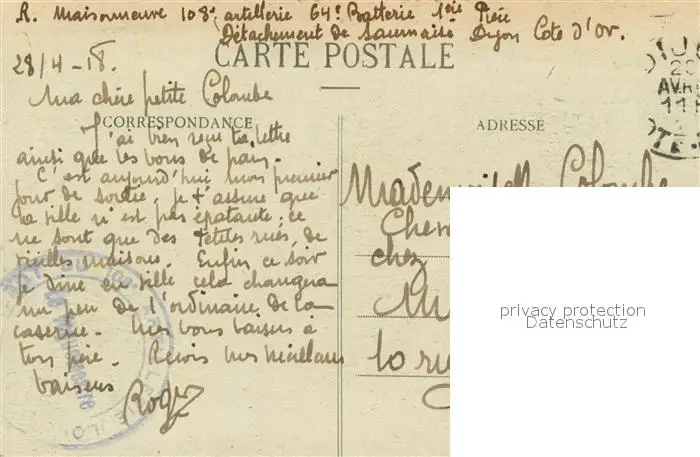 R. Maisonneuve 108e artillerie 64e Batterie 1ère Pièce
Détachement de Dijon Cote d'Or.
CARTE POSTALE
28/4-18.
Ma chère petite Colombe
CORRESPONDANCE
ADRESSE
J'ai bien reçu ta lettre
ainsi que les bons de pain.
C'est aujourd'hui mon premier
jour de sortie. Je t'assure que
la ville n'est pas épatante; ce
ne sont que des petites rues, de
vieilles maisons. Enfin ce soir
je dîne en ville cela changera
un peu de l'ordinaire de la
caserne. Mes bons baisers à
ton père. Reçois mes meilleurs
baisers
Roger
Mademoiselle Colombe
chez
10 rue
AVR
privacy protection
Datenschutz